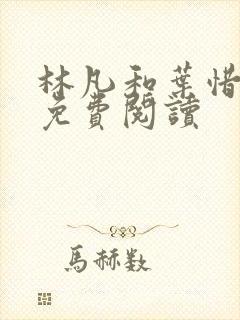 林凡和葉惜
免費閱讀
馬赫数